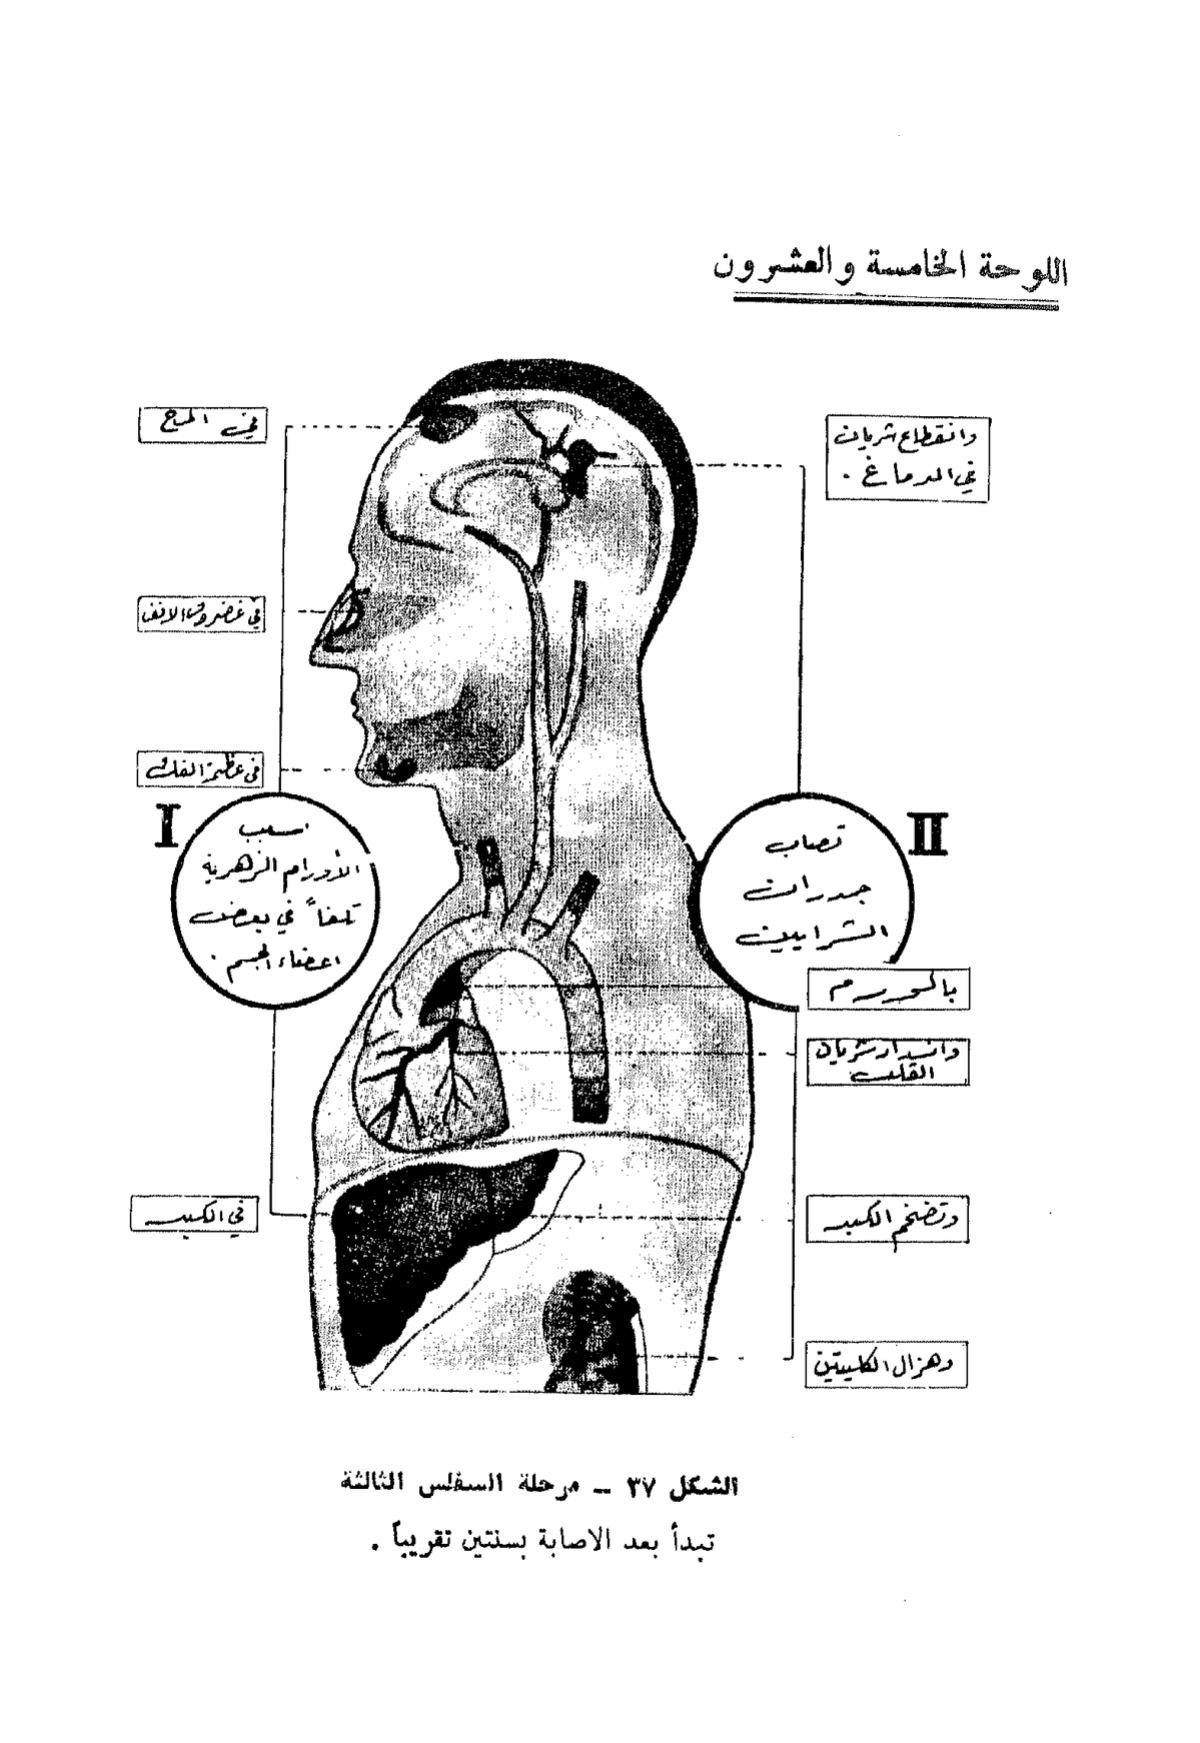 اللوحة الخامسة والعشرون
في المخ
في غضروف الانف
في عظمة الفك
I
تسبب
الأورام الزهرية
تلفاً في بعض
اعضاء الجسم .
في الكبد
وانقطاع شريان
في الدماغ .
II
تصاب
جدران
الشرايين
بالتورم
وانسداد شريان
القلب
وتضخم الكبد
وهزال الكليتين
الشكل ٣٧ – مرحلة السفلس الثالثة
تبدأ بعد الاصابة بسنتين تقريباً .